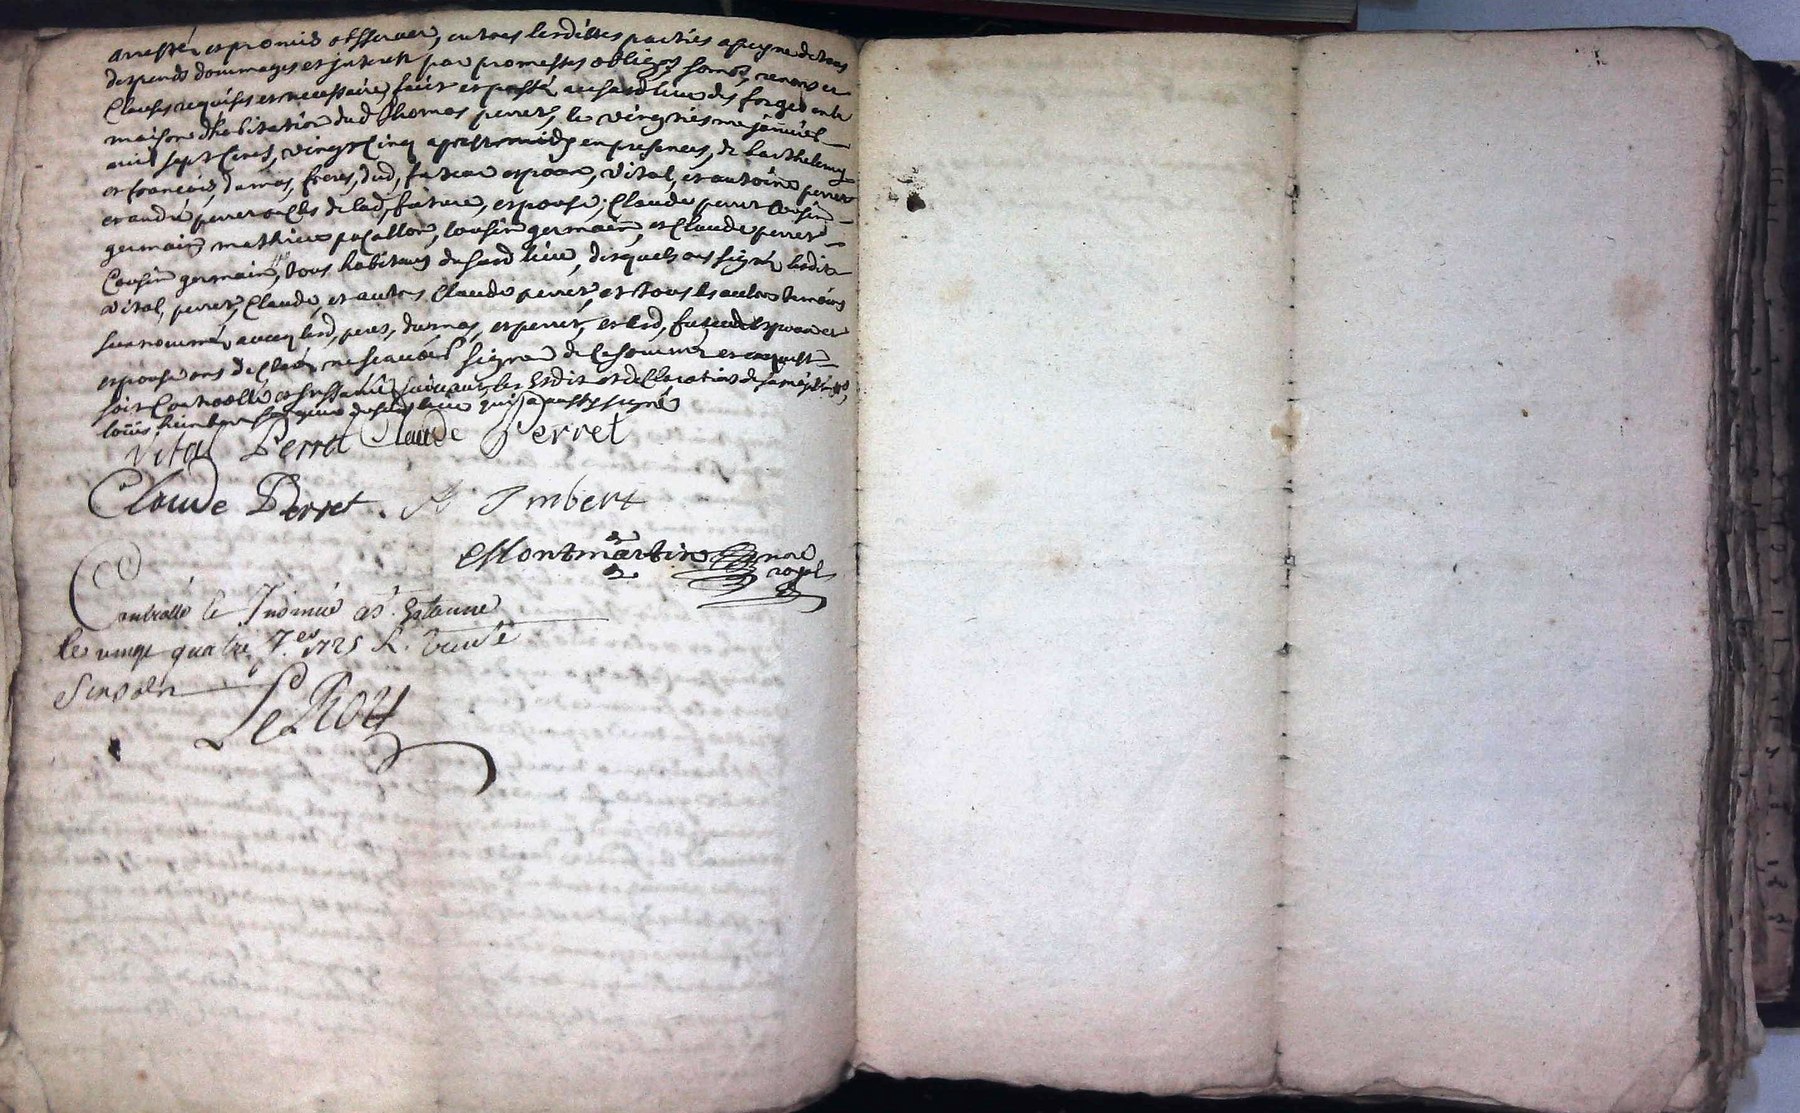 arresté et promis observer, entres lesdittes parties a peyne de tous
despends dommages et interest par promesses obligeons soms renons et
Clauses requises et necessaire, faict et passé au sard lieu des forges en la
maison d'habitation dud Thomas perret, le vingtiesme
mil sept Cens, vingt Cinq apres midy en presences, de barthelemy
et francois, dumas, freres, dud, futeur espoux, Vital, et antoine perret
et andré perret oncles de lad, future, espouse, Claude perret Cousin
germain mathieu pacallon, Cousin germain, et Claude perret
Cousin germain, tous habitans du sard lieu, desquels ons signé lesdits
Vital, perret, Claude, et autres Claude perret, et tous les autres temoins
surnommé, avecq lesd, peres, dumas, et perret, et lesd, futeur espoux et
espouse ons declaré ne scavoir signer de ce sommé et enquist
soit Controllé et insinué suivant les Esdit et declarations de sa majesté
louis himbert dud lieu qui a aussy signé
Vital Perret Claude Perret
Claude Perret. Imbert
Montmartin nore
royal
Controllé et Insinué a St Estienne
le vingt quatre 7.er 1725 R. trente
six sols
Le Roy